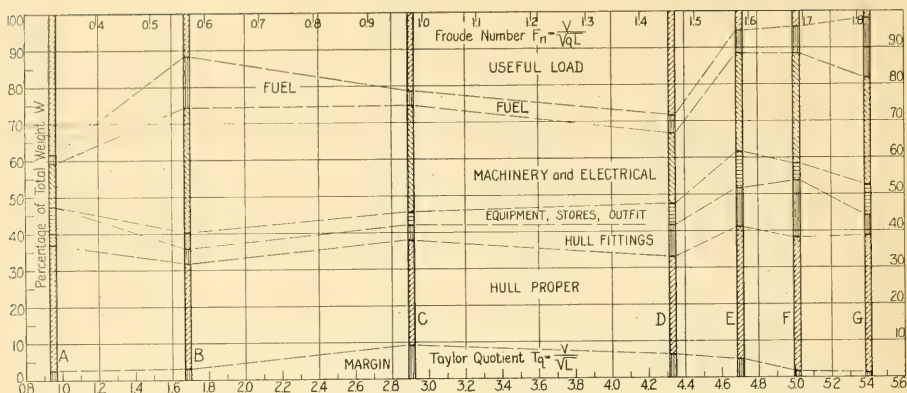 100
90
80
70
60
50
40
30
20
10
0
Percentage of Total Weight W
0.4 0.5 0.6 0.7 0.8 0.9 1.0 1.1 1.2 1.3 1.4 1.5 1.6 1.7 1.8
Froude Number Fn = V/√gL
USEFUL LOAD
FUEL
FUEL
MACHINERY and ELECTRICAL
EQUIPMENT, STORES, OUTFIT
HULL FITTINGS
HULL PROPER
A B C D E F G
MARGIN
Taylor Quotient Tq = V/√L
90
80
70
60
50
40
30
20
10
0.8 1.0 1.2 1.4 1.6 1.8 2.0 2.2 2.4 2.6 2.8 3.0 3.2 3.4 3.6 3.8 4.0 4.2 4.4 4.6 4.8 5.0 5.2 5.4 5.6